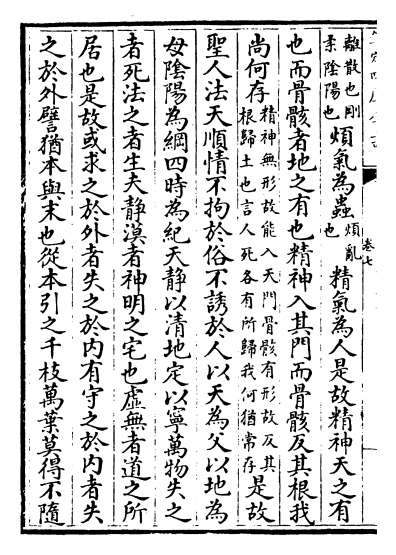 卷七
離散也剛柔陰陽也煩氣為蟲煩亂也精氣為人是故精神天之有
也而骨骸者地之有也精神入其門而骨骸反其根我
尚何存精神無形故能入天門骨骸有形故反其根歸土也言人死各有所歸我何猶常存是故
聖人法天順情不拘於俗不誘於人以天為父以地為
母陰陽為綱四時為紀天静以清地定以寧萬物失之
者死法之者生夫静漠者神明之宅也虛無者道之所
居也是故或求之於外者失之於内有守之於内者失
之於外譬猶本與末也從本引之千枝萬葉莫得不隨